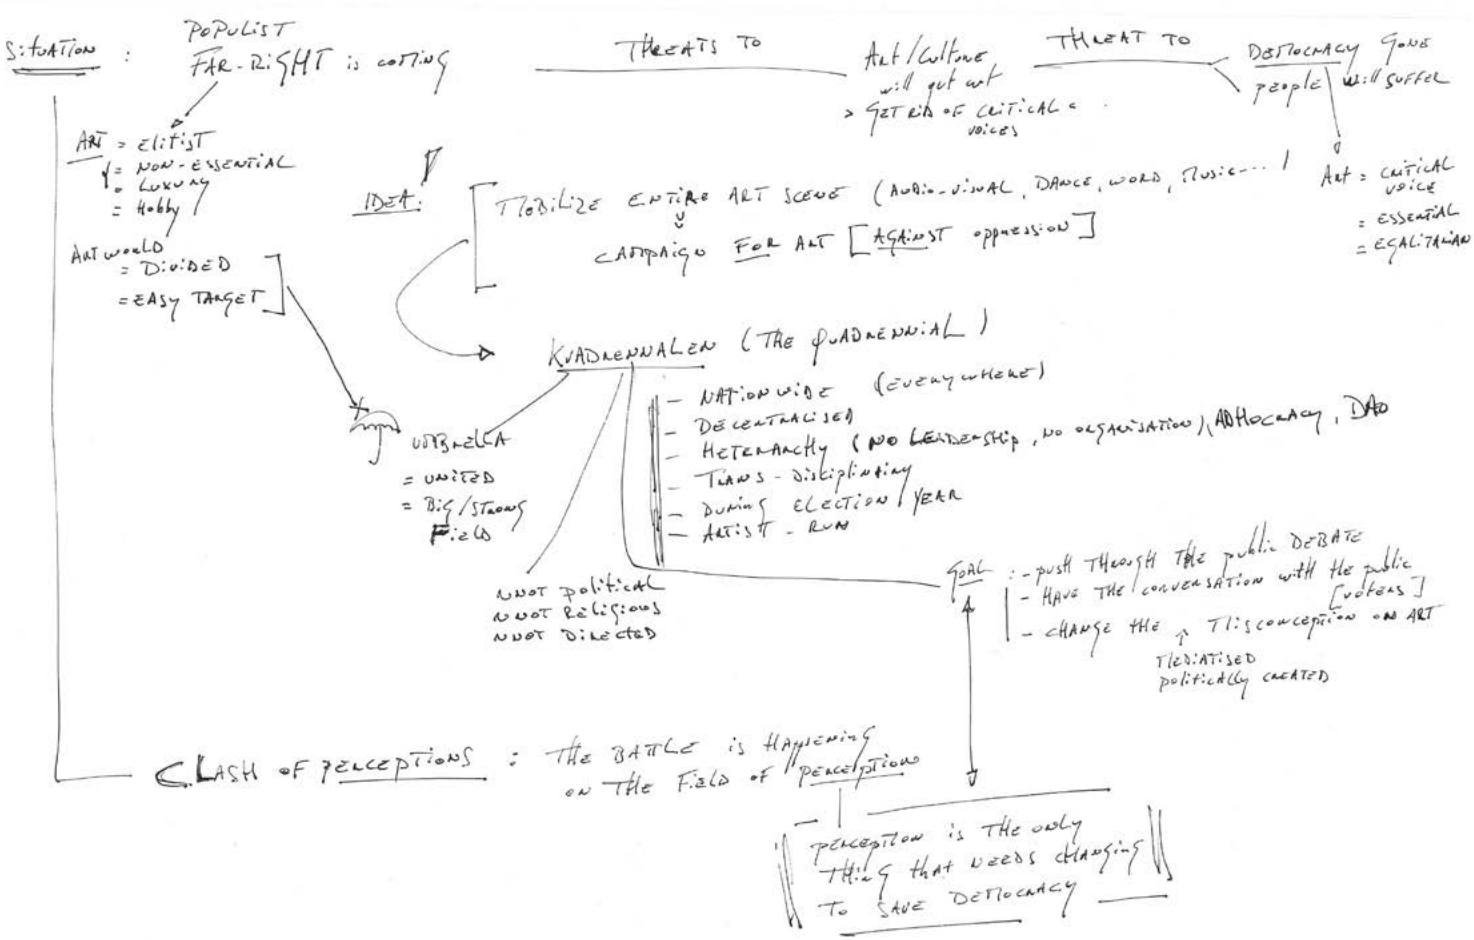 SITUATION :
POPULIST
FAR-RIGHT is coming
THREATS TO
Art/Culture
will get cut
> GET RID OF CRITICAL
voices
THREAT TO
DEMOCRACY GONE
people will SUFFER
ART = Elitist
= NON-ESSENTIAL
= LUXURY
= Hobby
Art world
= DIVIDED
= EASY TARGET
IDEA:
MOBILIZE ENTIRE ART SCENE (AUDIO-VISUAL, DANCE, WORD, MUSIC...)
CAMPAIGN FOR ART [AGAINST oppression]
Art = CRITICAL
VOICE
= ESSENTIAL
= EGALITARIAN
KVADRENNALEN (THE QUADRENNIAL)
- NATIONWIDE (EVERYWHERE)
- DECENTRALISED
- HETERARCHY (NO LEADERSHIP, NO ORGANISATION), ADHOCRACY, DAO
- TRANS-Disciplinary
- DURING ELECTION YEAR
- ARTIST-RUN
UMBRELLA
= UNITED
= BIG/STRONG
FIELD
NOT political
NOT Religious
NOT Directed
GOAL : - push THROUGH THE public DEBATE
- HAVE THE conversation with the public
[voters]
- CHANGE THE ↑ Misconception on ART
MEDIATISED
politically CREATED
CLASH OF PERCEPTIONS : THE BATTLE is HAPPENING
ON THE FIELD OF PERCEPTION
PERCEPTION is THE only
THING that NEEDS CHANGING
To SAVE DEMOCRACY